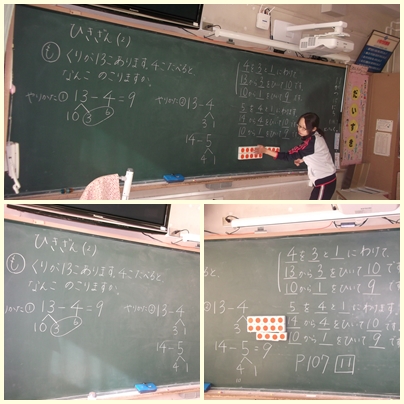 ひきざん(2)
も くりが13こあります。4こたべると、
なんこ のこりますか。
やりかた① 13-4=9
10 3
やりかた② 13-4
3 1
14-5
4 1
4を3と1にわけて、
13から3をひいて10です。
10から1をひいて9です。
5を4と1にわけます。
14から4をひいて10です。
10から1をひいて9です。
ひきざん(2)
も くりが13こあります。4こたべると
なんこ のこりますか。
かた① 13-4=9
10 3
やりかた② 13-4
3 1
14-5
4 1
と、
13-4
3
14-5=9
4 1
4を3と1にわけて、
13から3をひいて10です
10から1をひいて9です
5を4と1にわけます。
14から4をひいて10です
10から1をひいて9です
P107 11